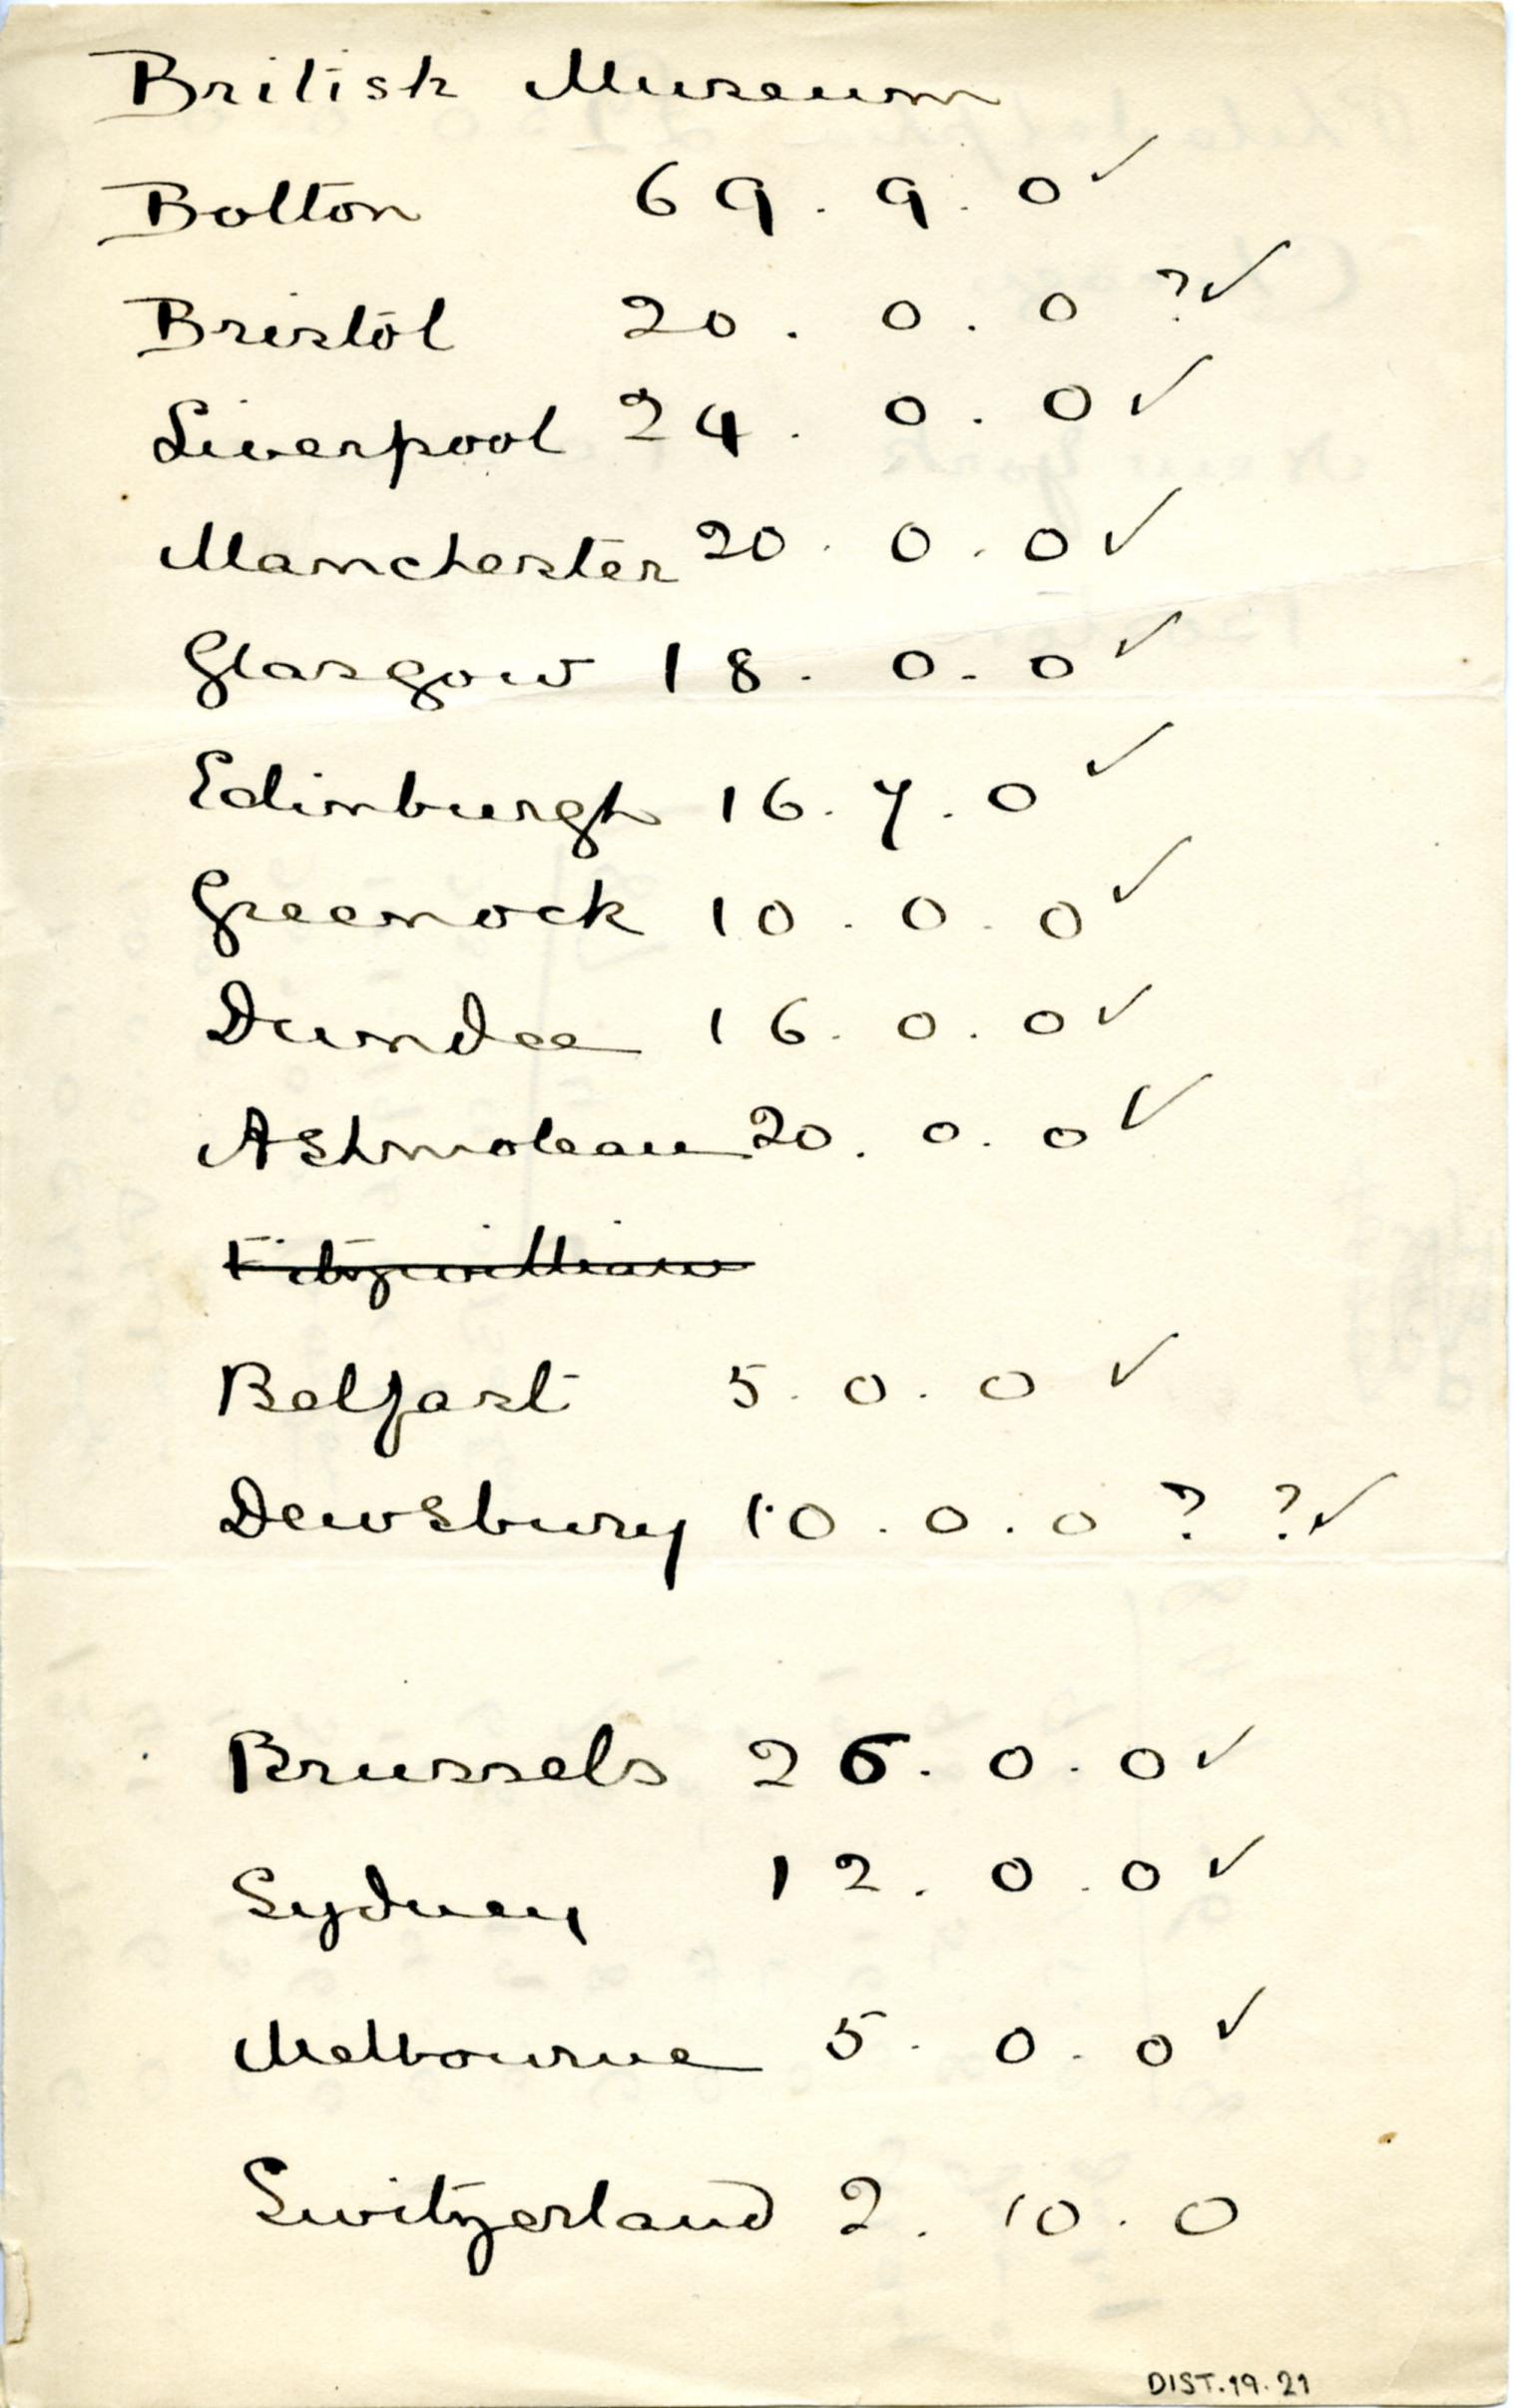 British Museum
Bolton 69 . 9 . 0 ✓
Bristol 20 . 0 . 0 ? ✓
Liverpool 24 . 0 . 0 ✓
Manchester 20 . 0 . 0 ✓
Glasgow 18 . 0 . 0 ✓
Edinburgh 16 . 7 . 0 ✓
Greenock 10 . 0 . 0 ✓
Dundee 16 . 0 . 0 ✓
Ashmolean 20 . 0 . 0 ✓
Fitzwilliam
Belfast 5 . 0 . 0 ✓
Dewsbury 10 . 0 . 0 ? ? ✓
Brussels 26 . 0 . 0 ✓
Sydney 12 . 0 . 0 ✓
Melbourne 5 . 0 . 0 ✓
Switzerland 2 . 10 . 0
DIST.19.21